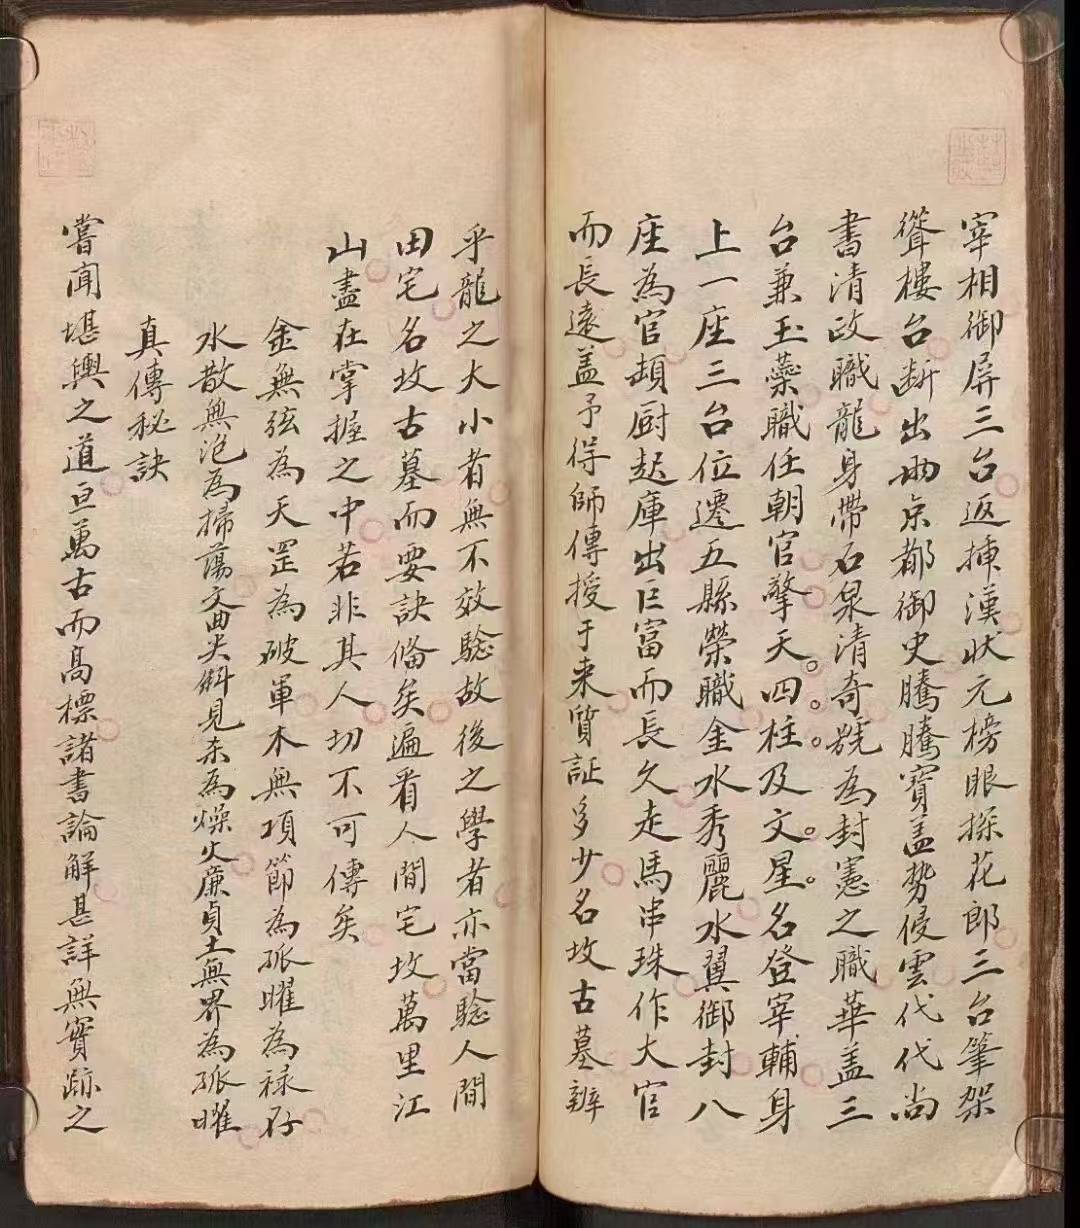 宰相御屏三台返挿漢状元榜眼探花郎三台筆架
聳樓台断出両京都御史騰騰寳盖勢侵雲代代尚
書清政職龍身帶石泉清奇號為封憲之職華盖三
台兼玉藥職任朝官擎天。四柱及文星名登宰輔身
上一座三台位遷五縣榮職金水秀麗水翼御封八
座為官頡厨起庫出巨富而長久走馬串珠作大官
而長遠盖予得師傳授于来質証多少名坟古墓辨
乎龍之大小者無不效驗故後之學者亦當驗人間
田宅名坟古墓而要訣俻矣遍看人間宅坟萬里江
山盡在掌握之中若非其人切不可傳矣
金無弦為天罡為破軍木無項節為孤曜為禄存
水散無泡為掃蕩文曲火斜見赤為燥火廉貞土無界為孤曜
真傳秘訣
嘗聞堪輿之道亘萬古而高標諸書論解甚詳無實跡之